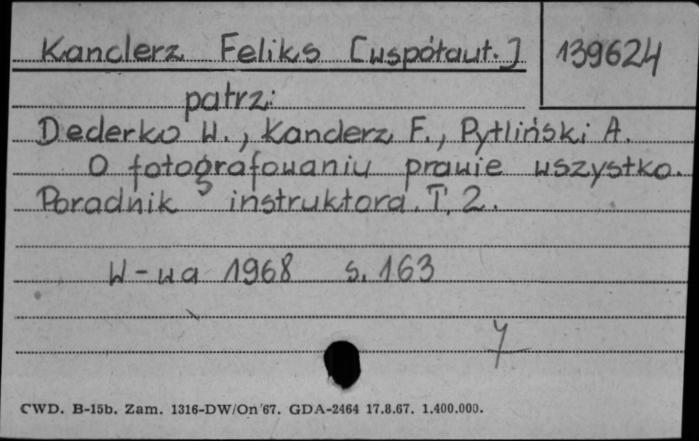 Kanclerz Feliks [współaut.] 139624
patrz:
Dederko W., Kanclerz F., Pytliński A.
O fotografowaniu prawie wszystko.
Poradnik instruktora. T. 2.
W-wa 1968 s. 163
Y
CWD. B-15b. Zam. 1316-DW/On/67. GDA-2464 17.8.67. 1.400.000.